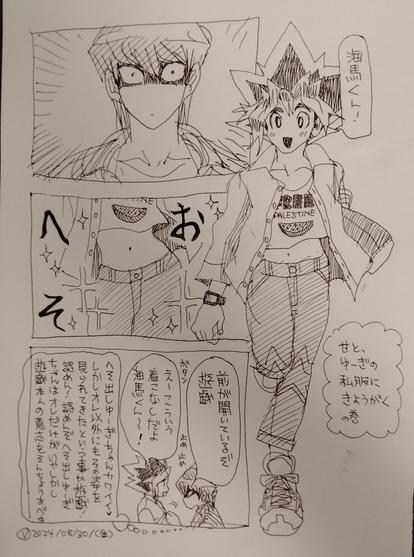 海馬くん!
FREE
PALESTINE
おへそ
せと、
ゆーぎの
私服に
きょうがく
の巻
前が開いているぞ
遊戯
ボタン
えーこういう
着こなしだよ
海馬くん〜!
へそ出しゆーぎちゃんカワイイ♡
しかしオレ以外にもその姿を
見られてきたという事か遊戯!
認めん!認めんぞへそ出しゆーぎ
ちゃんはオレだけがいやしかし
遊戯本人の意志をそんちょうすべき
2024/08/30(金)